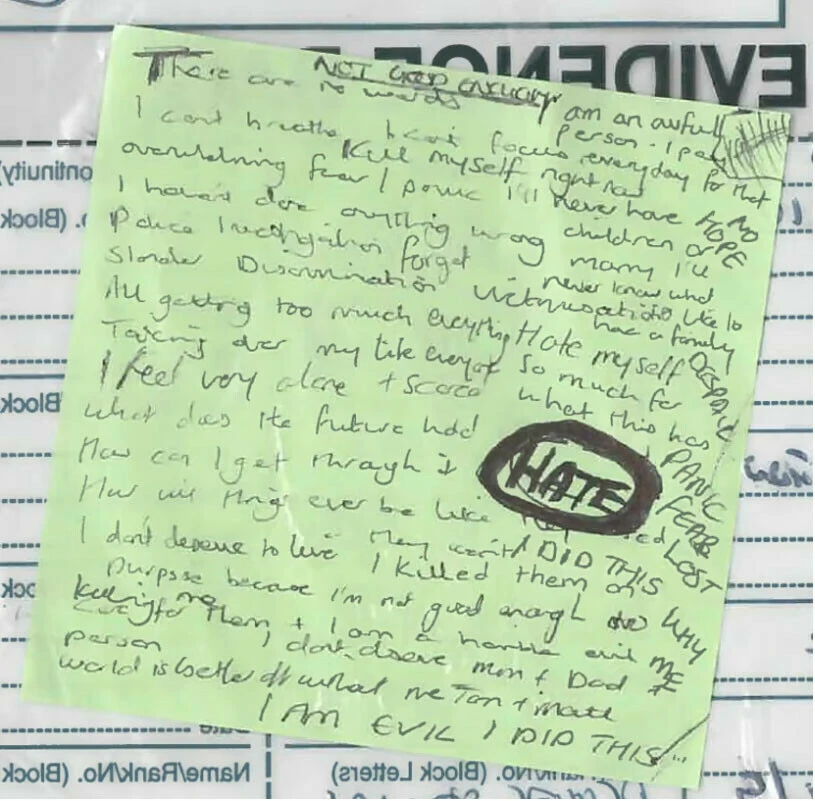 EVIDENCE
NOT GOOD ENOUGH
There are no words
I am an awful person. I pay
I can't breathe I can't focus everyday for that
Kill myself right now
overwhelming fear / panic I'll never have NO HOPE
I haven't done anything wrong children or
marry I'll
Police Investigation forget never know what
Slander Discrimination Victimisation like to
have a family
All getting too much everything Hate myself DESPAIR
Taking over my life so much for
I feel very alone + scared what this has
what does the future hold PANIC
How can I get through it HATE FEAR
How will things ever be like LOST
they won't I DID THIS
I don't deserve to live I killed them on WHY
purpose because I'm not good enough to
Killing me care for them + I am a horrible evil ME
person I don't deserve mum + Dad
world is better off
I AM EVIL I DID THIS
Name/Rank/No. (Block
Rank/No. (Block Letters)